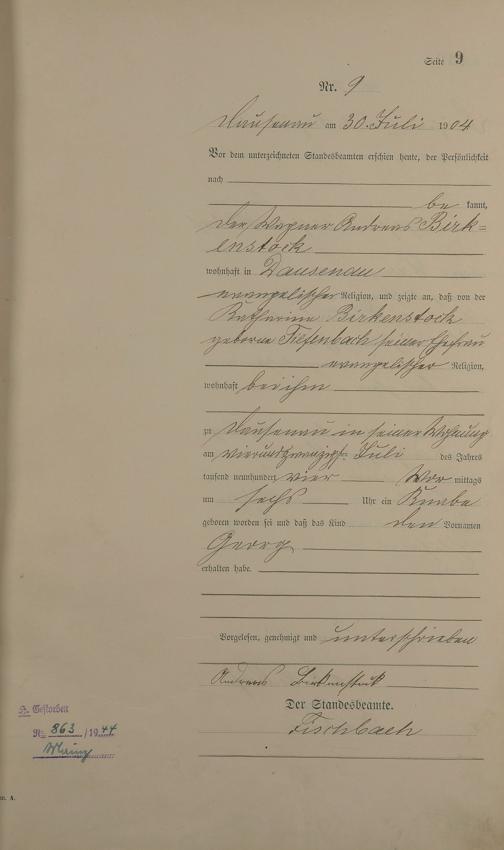 Seite 9
Nr. 9
Dausenau am 30. Juli 1904
Vor dem unterzeichneten Standesbeamten erschien heute, der Persönlichkeit
nach
be kannt,
der Wagner Andreas Birk=
enstock
wohnhaft in Dausenau
evangelischer Religion, und zeigte an, daß von der
Katharine Birkenstock
geborne Tiefenbach seiner Ehefrau
evangelischer Religion,
wohnhaft bei ihm
zu Dausenau in seiner Wohnung
am vierundzwanzigsten Juli des Jahres
tausend neunhundert vier Vor mittags
um sechs Uhr ein Knabe
geboren worden sei und daß das Kind den Vornamen
Georg
erhalten habe.
Vorgelesen, genehmigt und unterschrieben
Andreas Birkenstock
Der Standesbeamte.
Fischbach
Gestorben
Nr. 863/1944
Mainz
m. A.